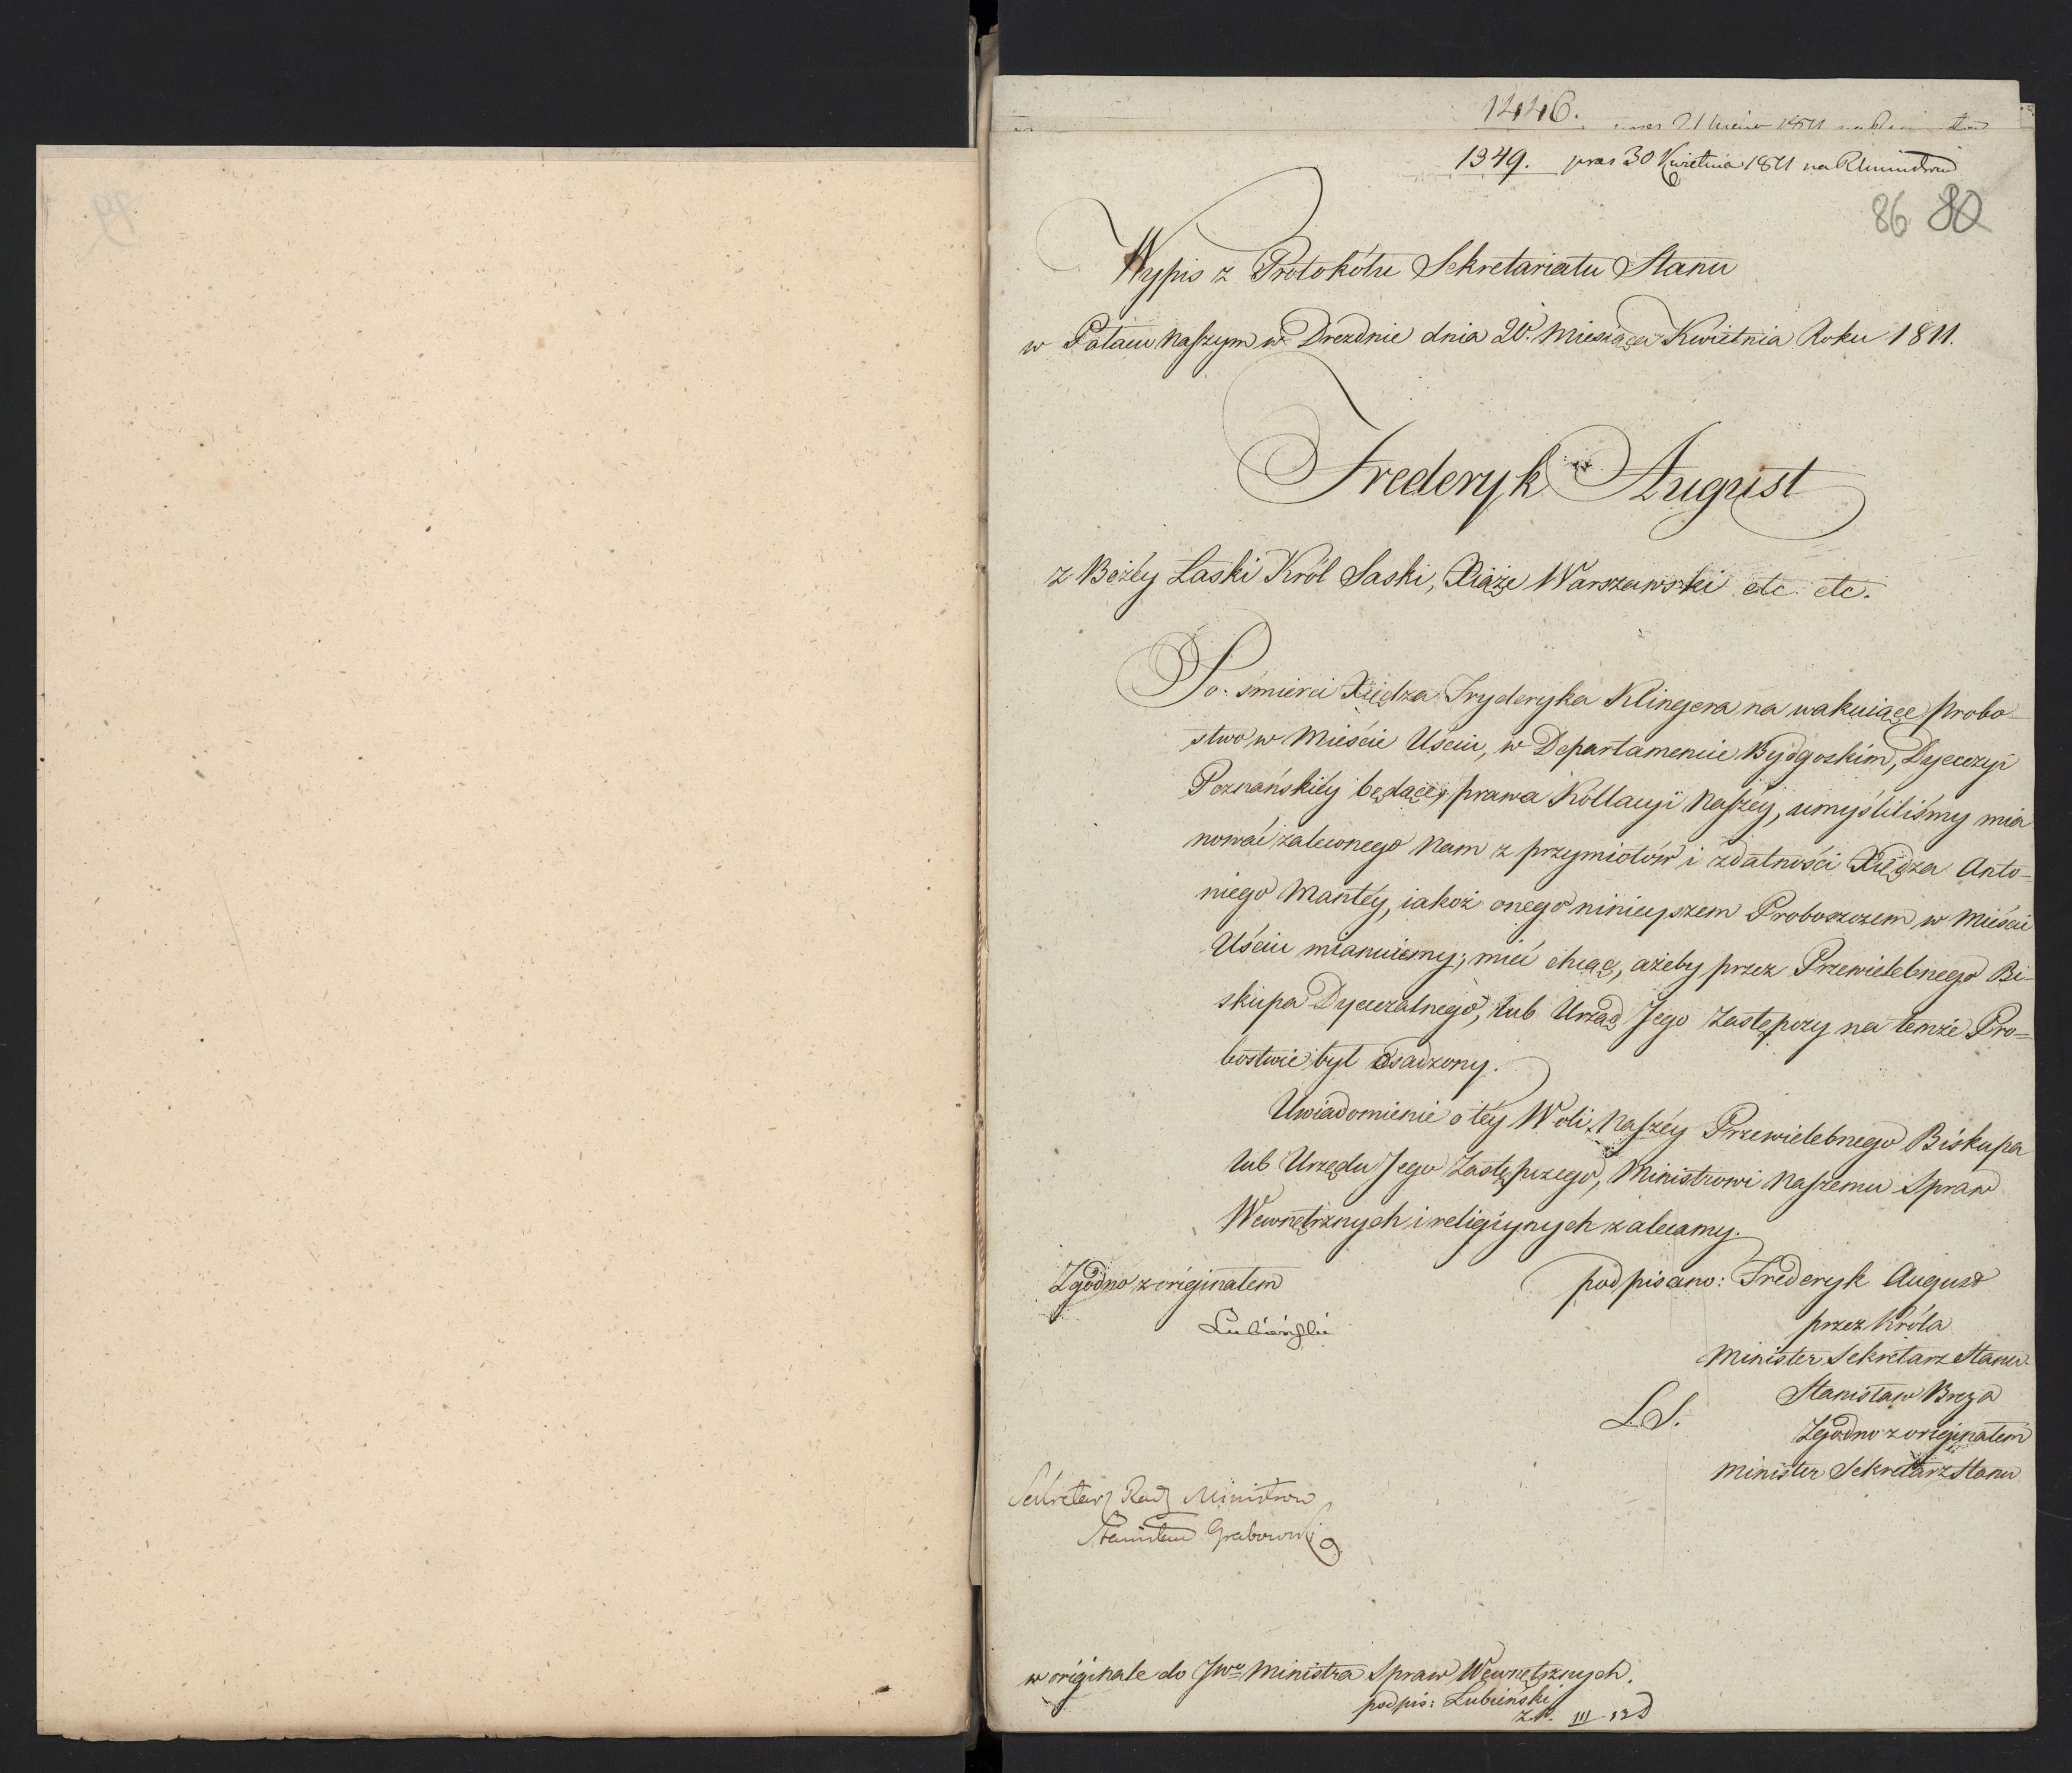 1446.
1349. pras 30 Kwietnia 1811 na R Ministrow
86 80
Wypis z Protokółu Sekretariatu Stanu
w Pałacu Naszym w Dreznie dnia 20. Miesiąca Kwietnia Roku 1811.
Frederyk August
z Bożey Łaski Król Saski, Xiąże Warszawski etc. etc.
Po śmierci Xiędza Fryderyka Klingera na wakuiące probo-
stwo w Mieście Uściu, w Departamencie Bydgoskim, Dyecezyi
Poznańskiéy będące, prawa Kollacyi Naszéy, umyśliliśmy mia
nować zaleconego Nam z przymiotów i zdatności Xiędza Anto=
niego Mantéy, iakoż onego ninieyszem Proboszczem w Mieście
Uściu mianuiemy; mieć chcąc, ażeby przez Przewielebnego Bi-
skupa Dyecezalnego, lub Urząd Jego Zastępczy na temże Pro=
bostwie był osadzony.
Uwiadomienie o téy Woli Naszéy Przewielebnego Biskupa
lub Urzędu Jego Zastępczego, Ministrowi Naszemu Spraw
Wewnętrznych i religiynych zalecamy.
Zgodno z originałem
Lubieński
podpisano: Frederyk August
przez Króla
Minister Sekretarz Stanu
Stanisław Breza
L.S.
Zgodno z originałem
Minister Sekretarz Stanu
Sekretarz Rady Ministrow
Stanisław Grabowski
w originale do Jwo Ministra Spraw Wewnętrznych.
podpis: Lubieński